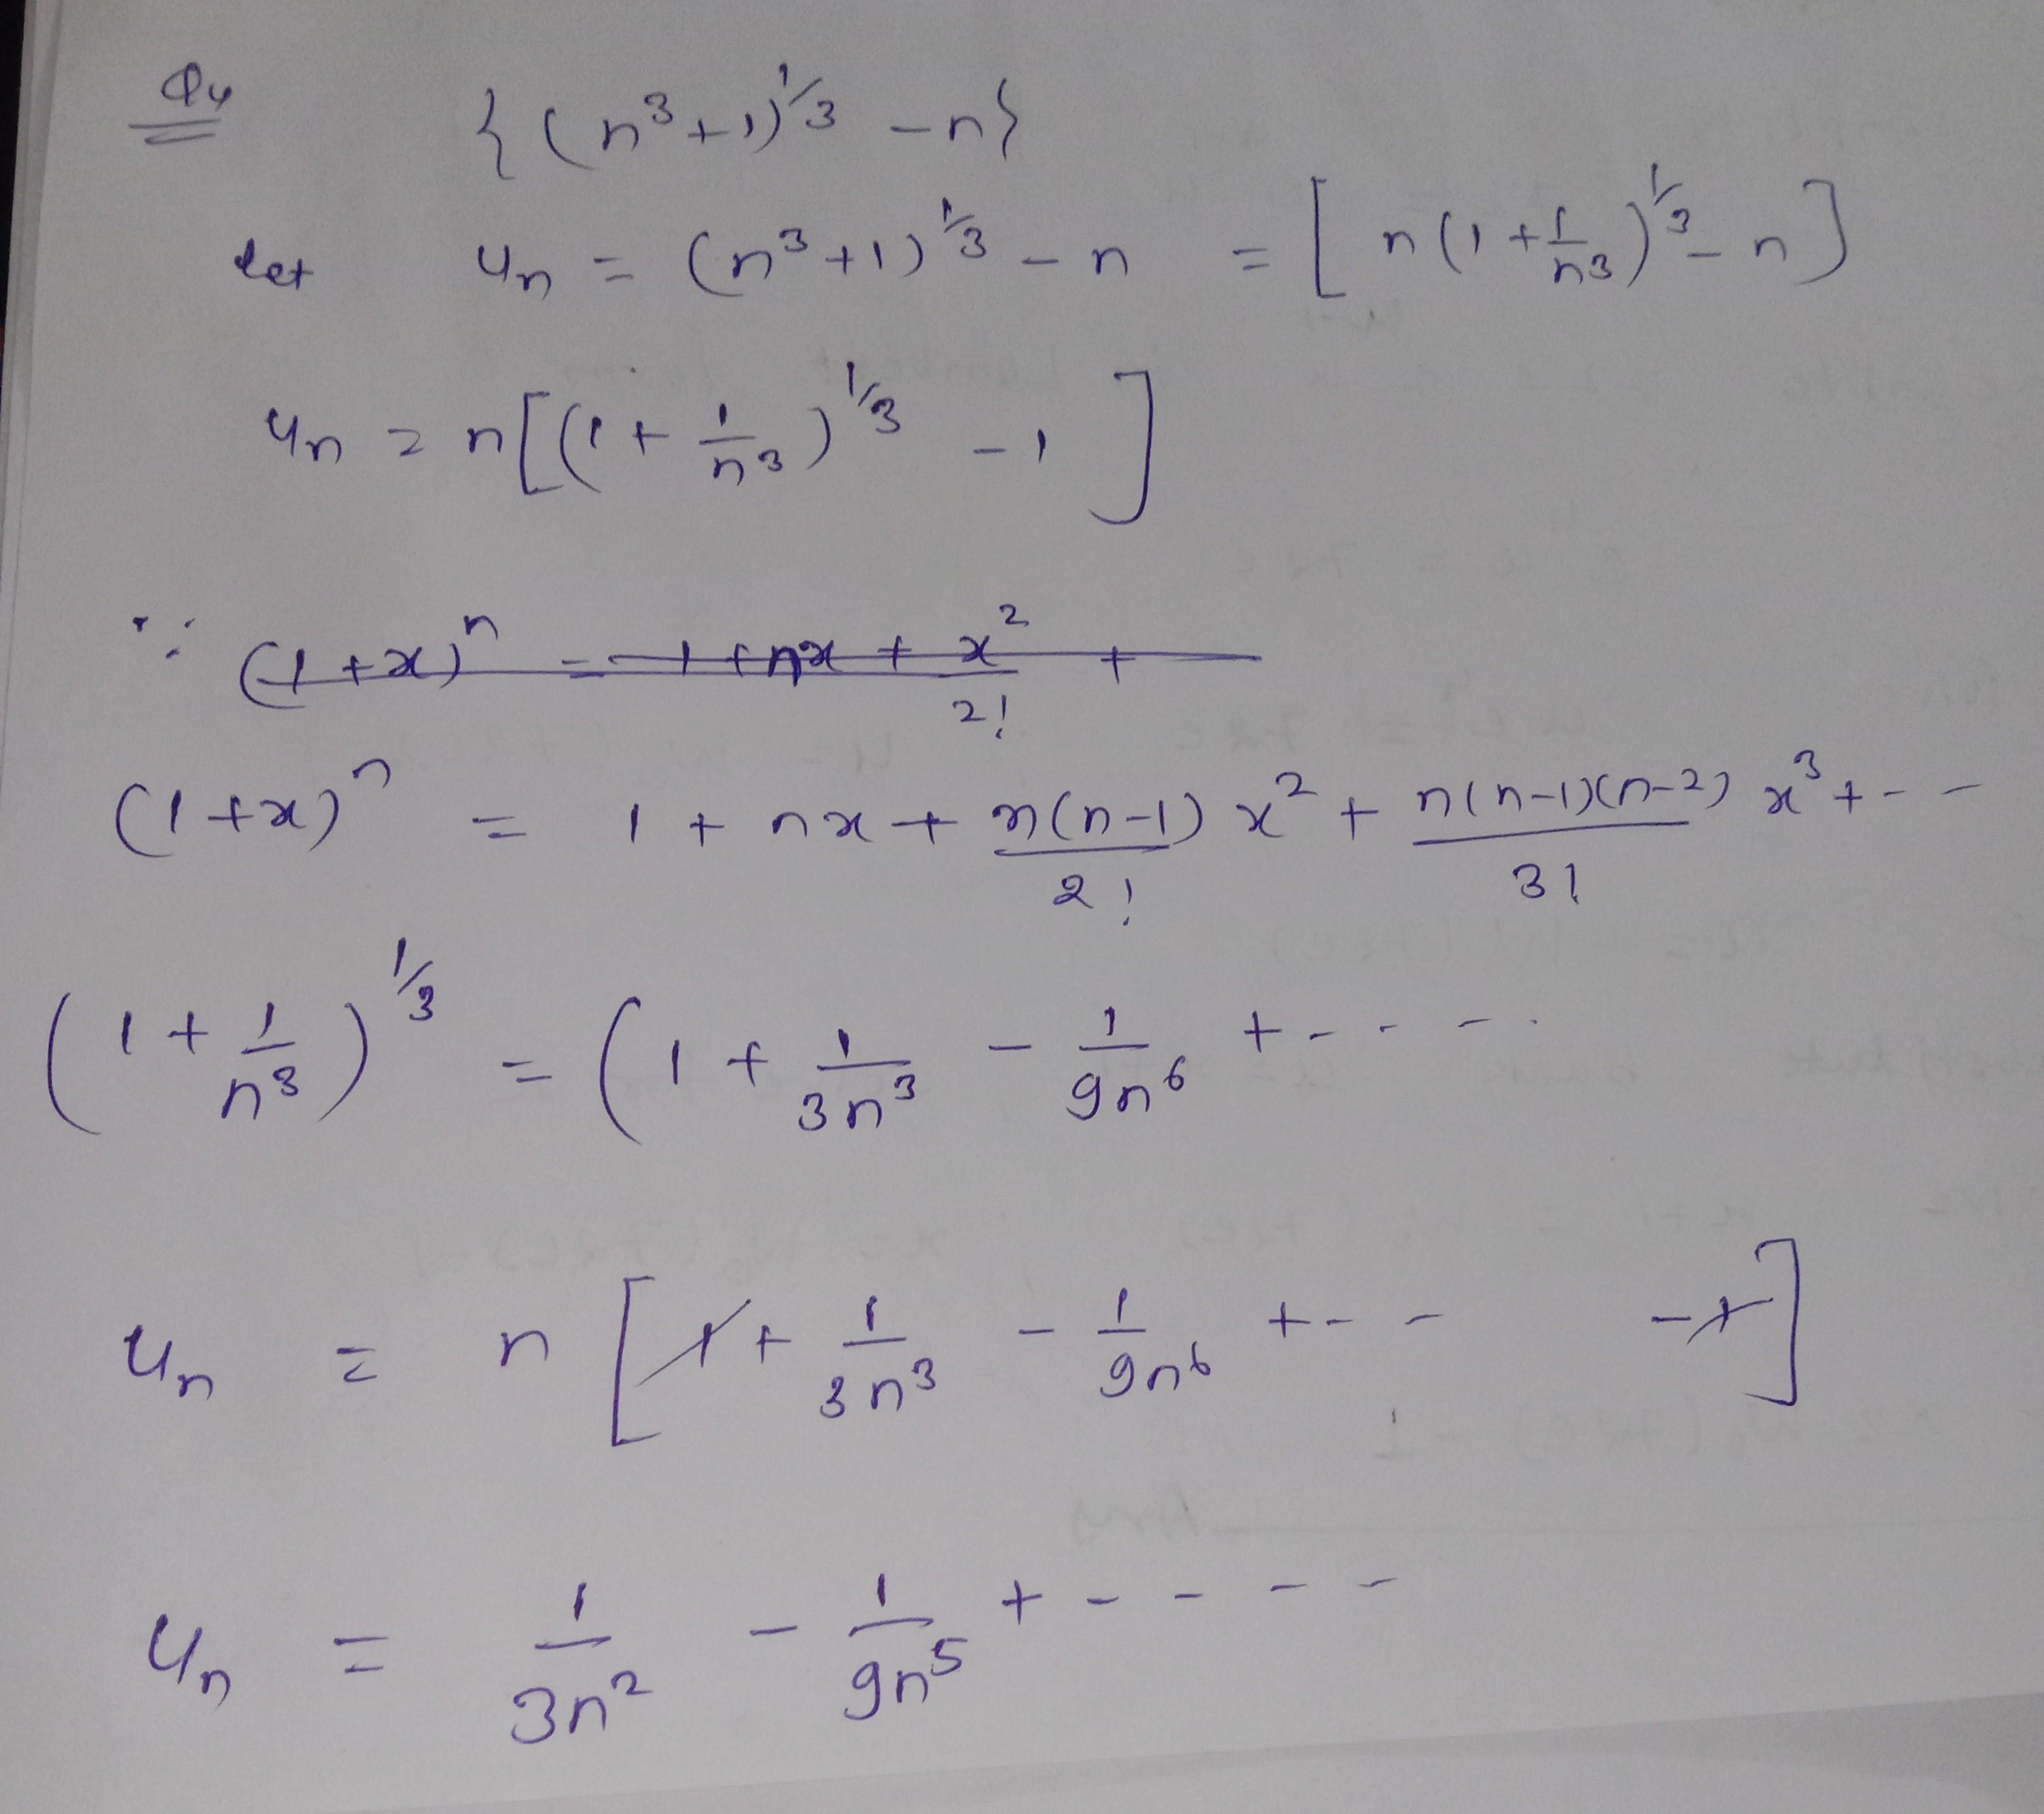 Q4 {(n³+1)^1/3 - n}
let un = (n³+1)^1/3 - n = [n(1+1/n³)^1/3 - n]
un = n[(1+1/n³)^1/3 - 1]
∵ (1+x)^n = 1+nx+x²/2! +
(1+x)^n = 1 + nx + n(n-1)/2! x² + n(n-1)(n-2)/3! x³ + - -
(1+1/n³)^1/3 = (1 + 1/3n³ - 1/9n⁶ + - - - -
un = n[1 + 1/3n³ - 1/9n⁶ + - - -1]
un = 1/3n² - 1/9n⁵ + - - - -